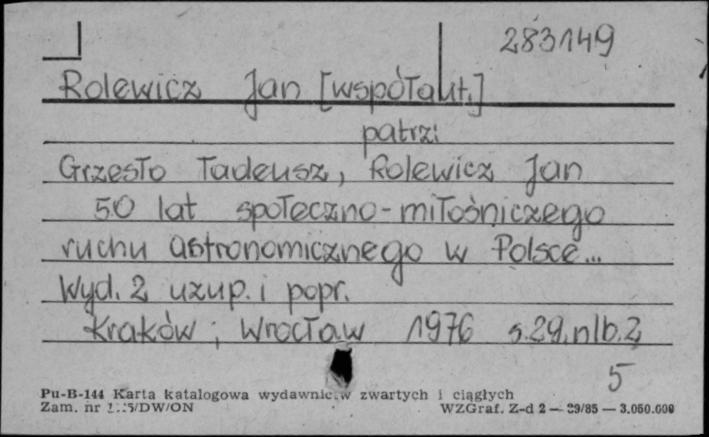 283149
Rolewicz Jan [współaut.]
patrz:
Grzesło Tadeusz, Rolewicz Jan
50 lat społeczno-miłośniczego
ruchu astronomicznego w Polsce...
Wyd. 2 uzup. i popr.
Kraków; Wrocław 1976 s. 29, nlb. 2
5
Pu-B-144 Karta katalogowa zwartych i ciągłych
Zam. nr WZGraf. Z-d 2 — 29/85 — 3.050.000